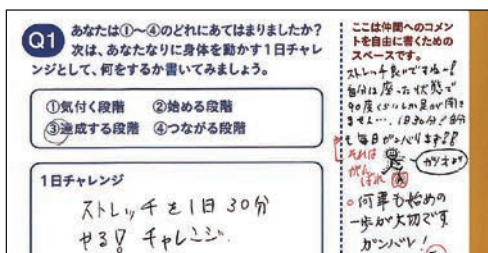 Q1
あなたは①～④のどれにあてはまりましたか？
次は、あなたなりに身体を動かす1日チャレ
ンジとして、何をするか書いてみましょう。
①気付く段階 ②始める段階
③達成する段階 ④つながる段階
1日チャレンジ
ストレッチを1日30分
やる！チャレンジ.
ここは仲間へのコメン
トを自由に書くための
スペースです。
ストレッチ良いですねー!
自分は座った状態で
90度くらいしか足が開き
ません…。1日30分!自分
も毎日ガンバります!!
それは
がんばれ
ガンバ
何事も始めの
一歩が大切です
ガンバレ!